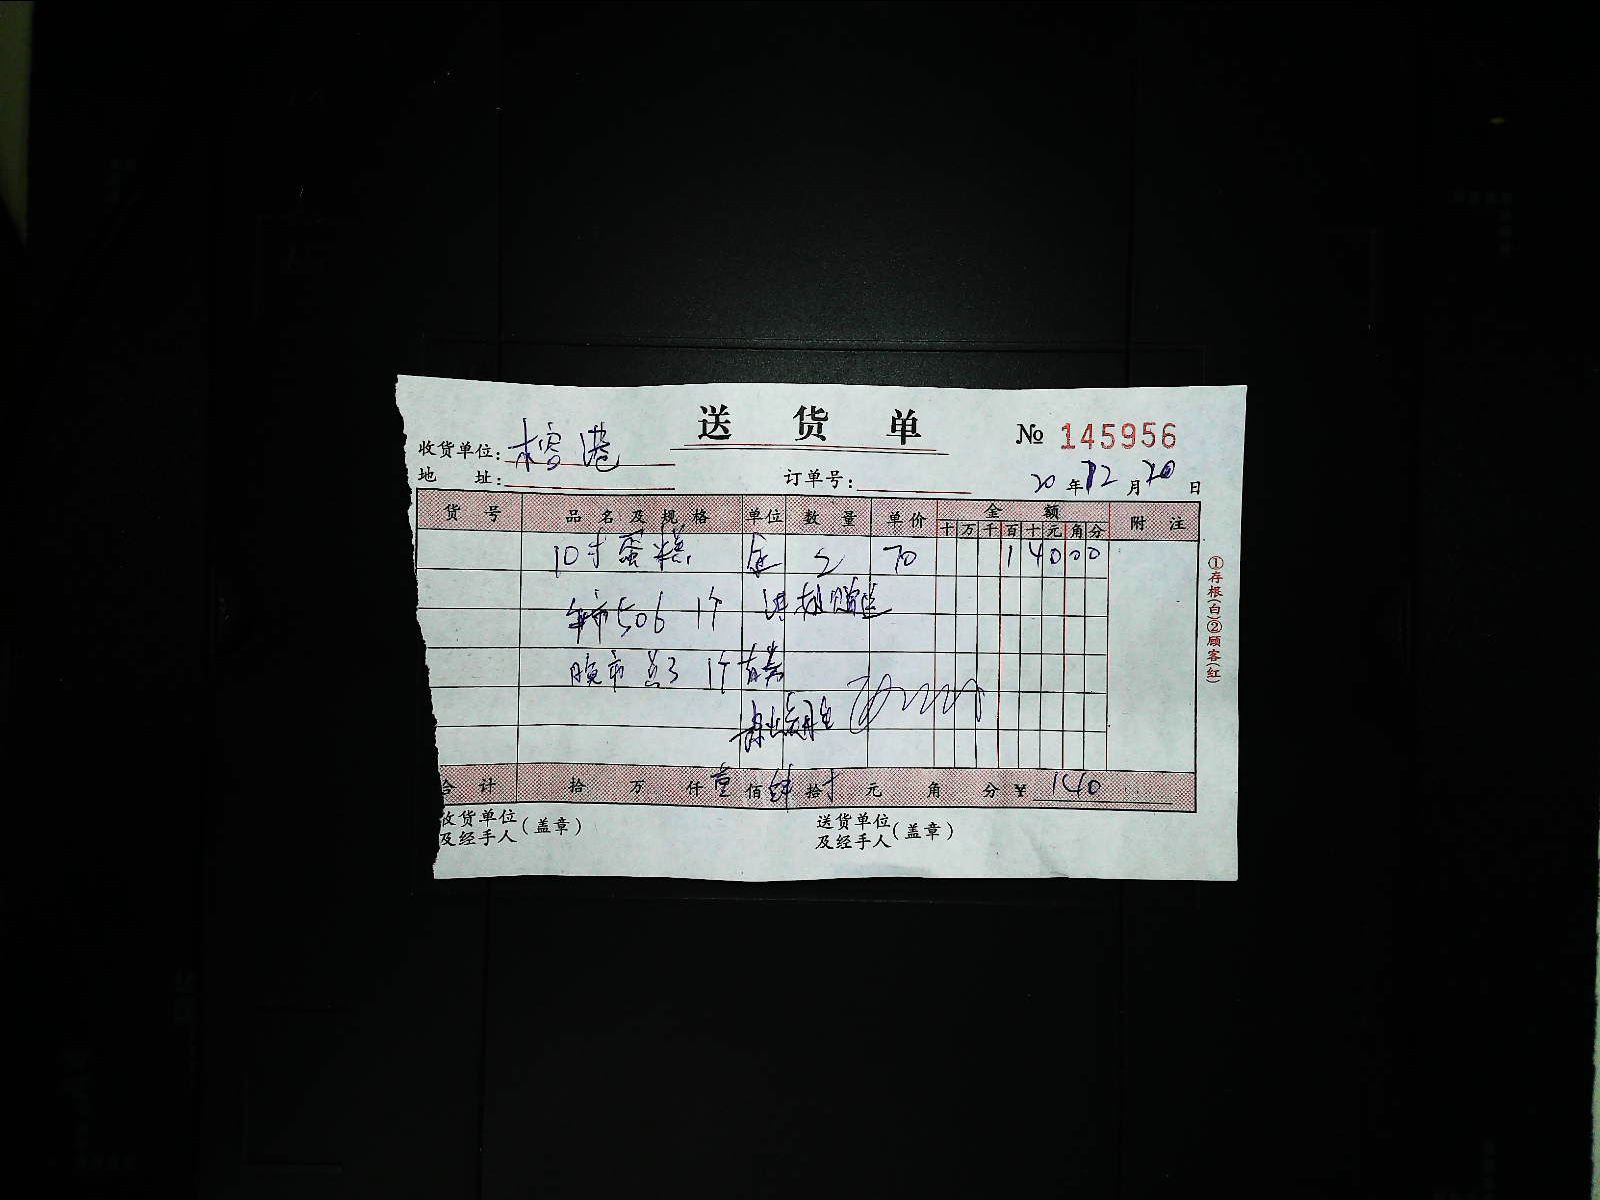 送货单
№ 145956
收货单位：榕港
地址： 订单号： 20年12月20日
货号 品名及规格 单位 数量 单价 金额 附注
十 万 千 百 十 元 角 分
10寸蛋糕 2 70 1 4 0 0 0
午市506 1个 赠送
晚市 1个
合计 拾 万 仟壹佰肆拾 元 角 分 ¥ 140
收货单位及经手人（盖章） 送货单位及经手人（盖章）
①存根（白）②顾客（红）